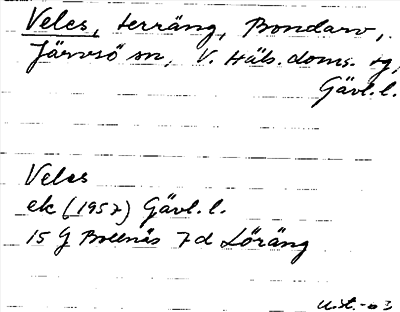 Veles, terräng, Bondarv,
Järvsö sn, V. Häls. doms. tg,
Gävl. l.
Veles
ek (1957) Gävl. l.
15 G Bollnäs 7d Löräng
u.st.-63